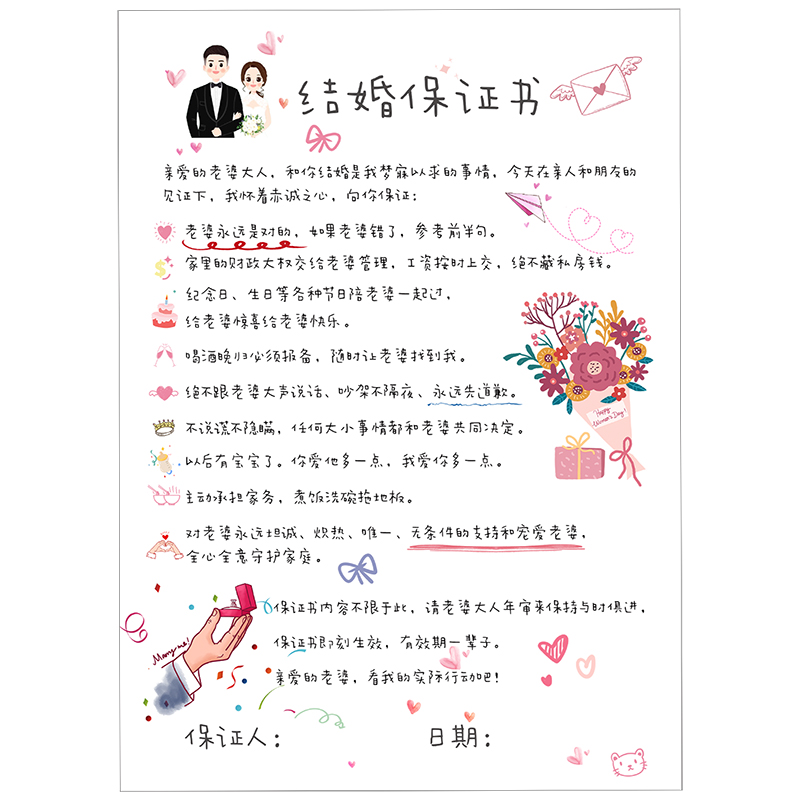 结婚保证书
亲爱的老婆大人，和你结婚是我梦寐以求的事情，今天在亲人和朋友的
见证下，我怀着赤诚之心，向你保证：
老婆永远是对的，如果老婆错了，参考前半句。
家里的财政大权交给老婆管理，工资按时上交，绝不藏私房钱。
纪念日、生日等各种节日陪老婆一起过，
给老婆惊喜给老婆快乐。
喝酒晚归必须报备，随时让老婆找到我。
绝不跟老婆大声说话、吵架不隔夜、永远先道歉。
不说谎不隐瞒，任何大小事情都和老婆共同决定。
Happy
Women's Day!
以后有宝宝了。你爱他多一点，我爱你多一点。
主动承担家务，煮饭洗碗拖地板。
对老婆永远坦诚、炽热、唯一、无条件的支持和宠爱老婆，
全心全意守护家庭。
保证书内容不限于此，请老婆大人年审来保持与时俱进，
保证书即刻生效，有效期一辈子。
Marry me!
亲爱的老婆，看我的实际行动吧！
保证人： 日期：